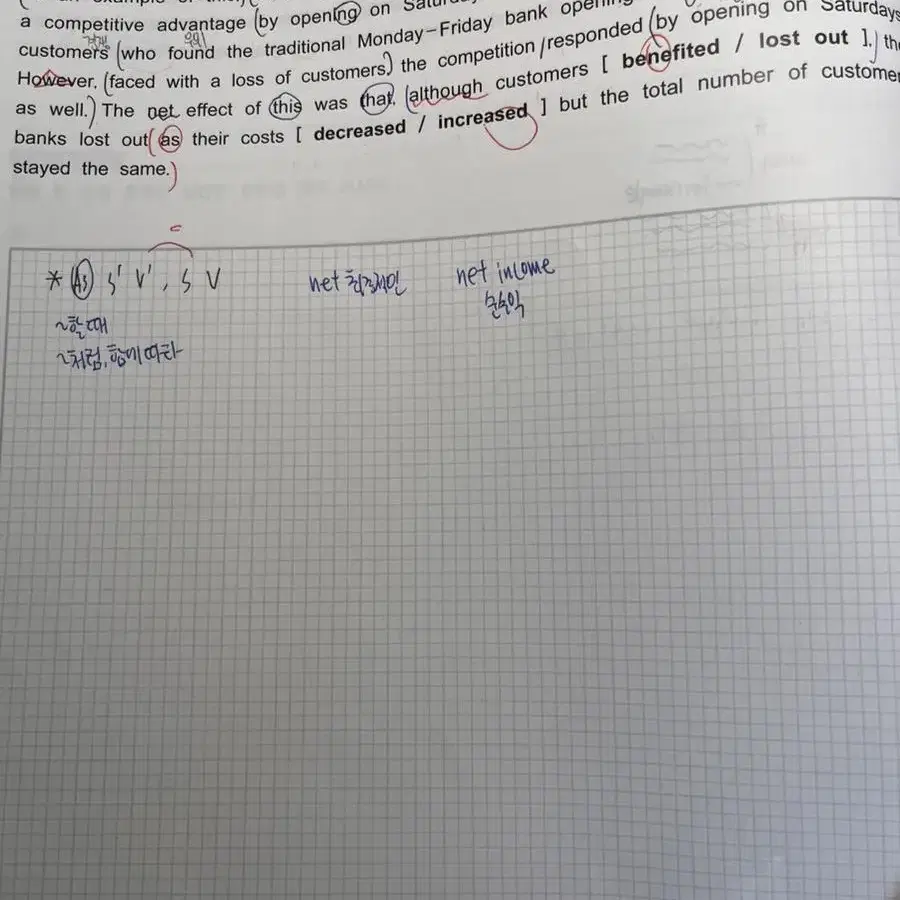 a competitive advantage (by opening on
customers (who found the traditional Monday-Friday bank
However, (faced with a loss of customers,) the competition / responded (by opening on Saturdays
as well.) The net effect of this was that, (although customers [ benefited / lost out ],) the
banks lost out (as their costs [ decreased / increased ] but the total number of
stayed the same.)
c
* As S' V' , S V
net 최종적인
net income
~할 때
순수익
~처럼, 함에 따라